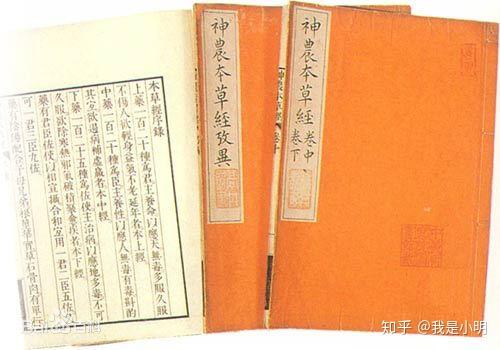 本草經序錄
上藥一百二十種為君主養命以應天無毒多服久服
不傷人欲輕身益氣不老延年者本上經
中藥一百二十種為臣主養性以應人無毒有毒斟
其宜欲遏病補虛羸者本中經
下藥一百二十五種為佐使主治病以應地多毒不可
久服欲除寒熱邪氣破積聚愈疾者本下經
藥有君臣佐使以相宣攝合和宜用一君二臣五佐
可一君三臣九佐
藥有陰陽配合子母兄弟根莖華實草石骨肉有單行
神農本草經攷異
神農本草經 卷中
卷下
知乎 @我是小明